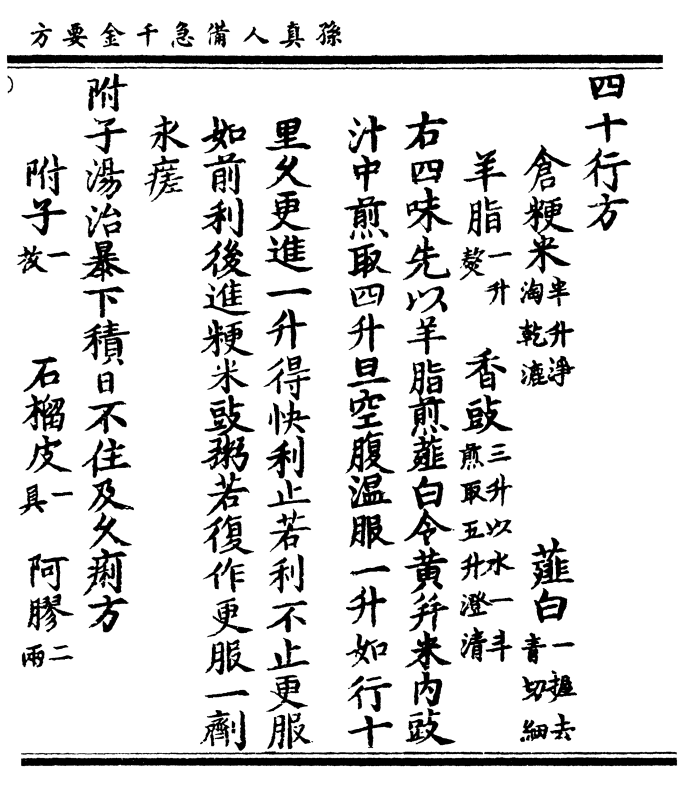 孫真人備急千金要方
四十行方
倉粳米半升淨淘乾漉 薤白一握去青切細
羊脂一升熬 香豉三升以水一斗煎取五升澄清
右四味先以羊脂煎薤白令黃并米內豉
汁中煎取四升旦空腹溫服一升如行十
里久更進一升得快利止若利不止更服
如前利後進粳米豉粥若復作更服一劑
永瘥
附子湯治暴下積日不住及久痢方
附子一枚 石榴皮一具 阿膠二兩